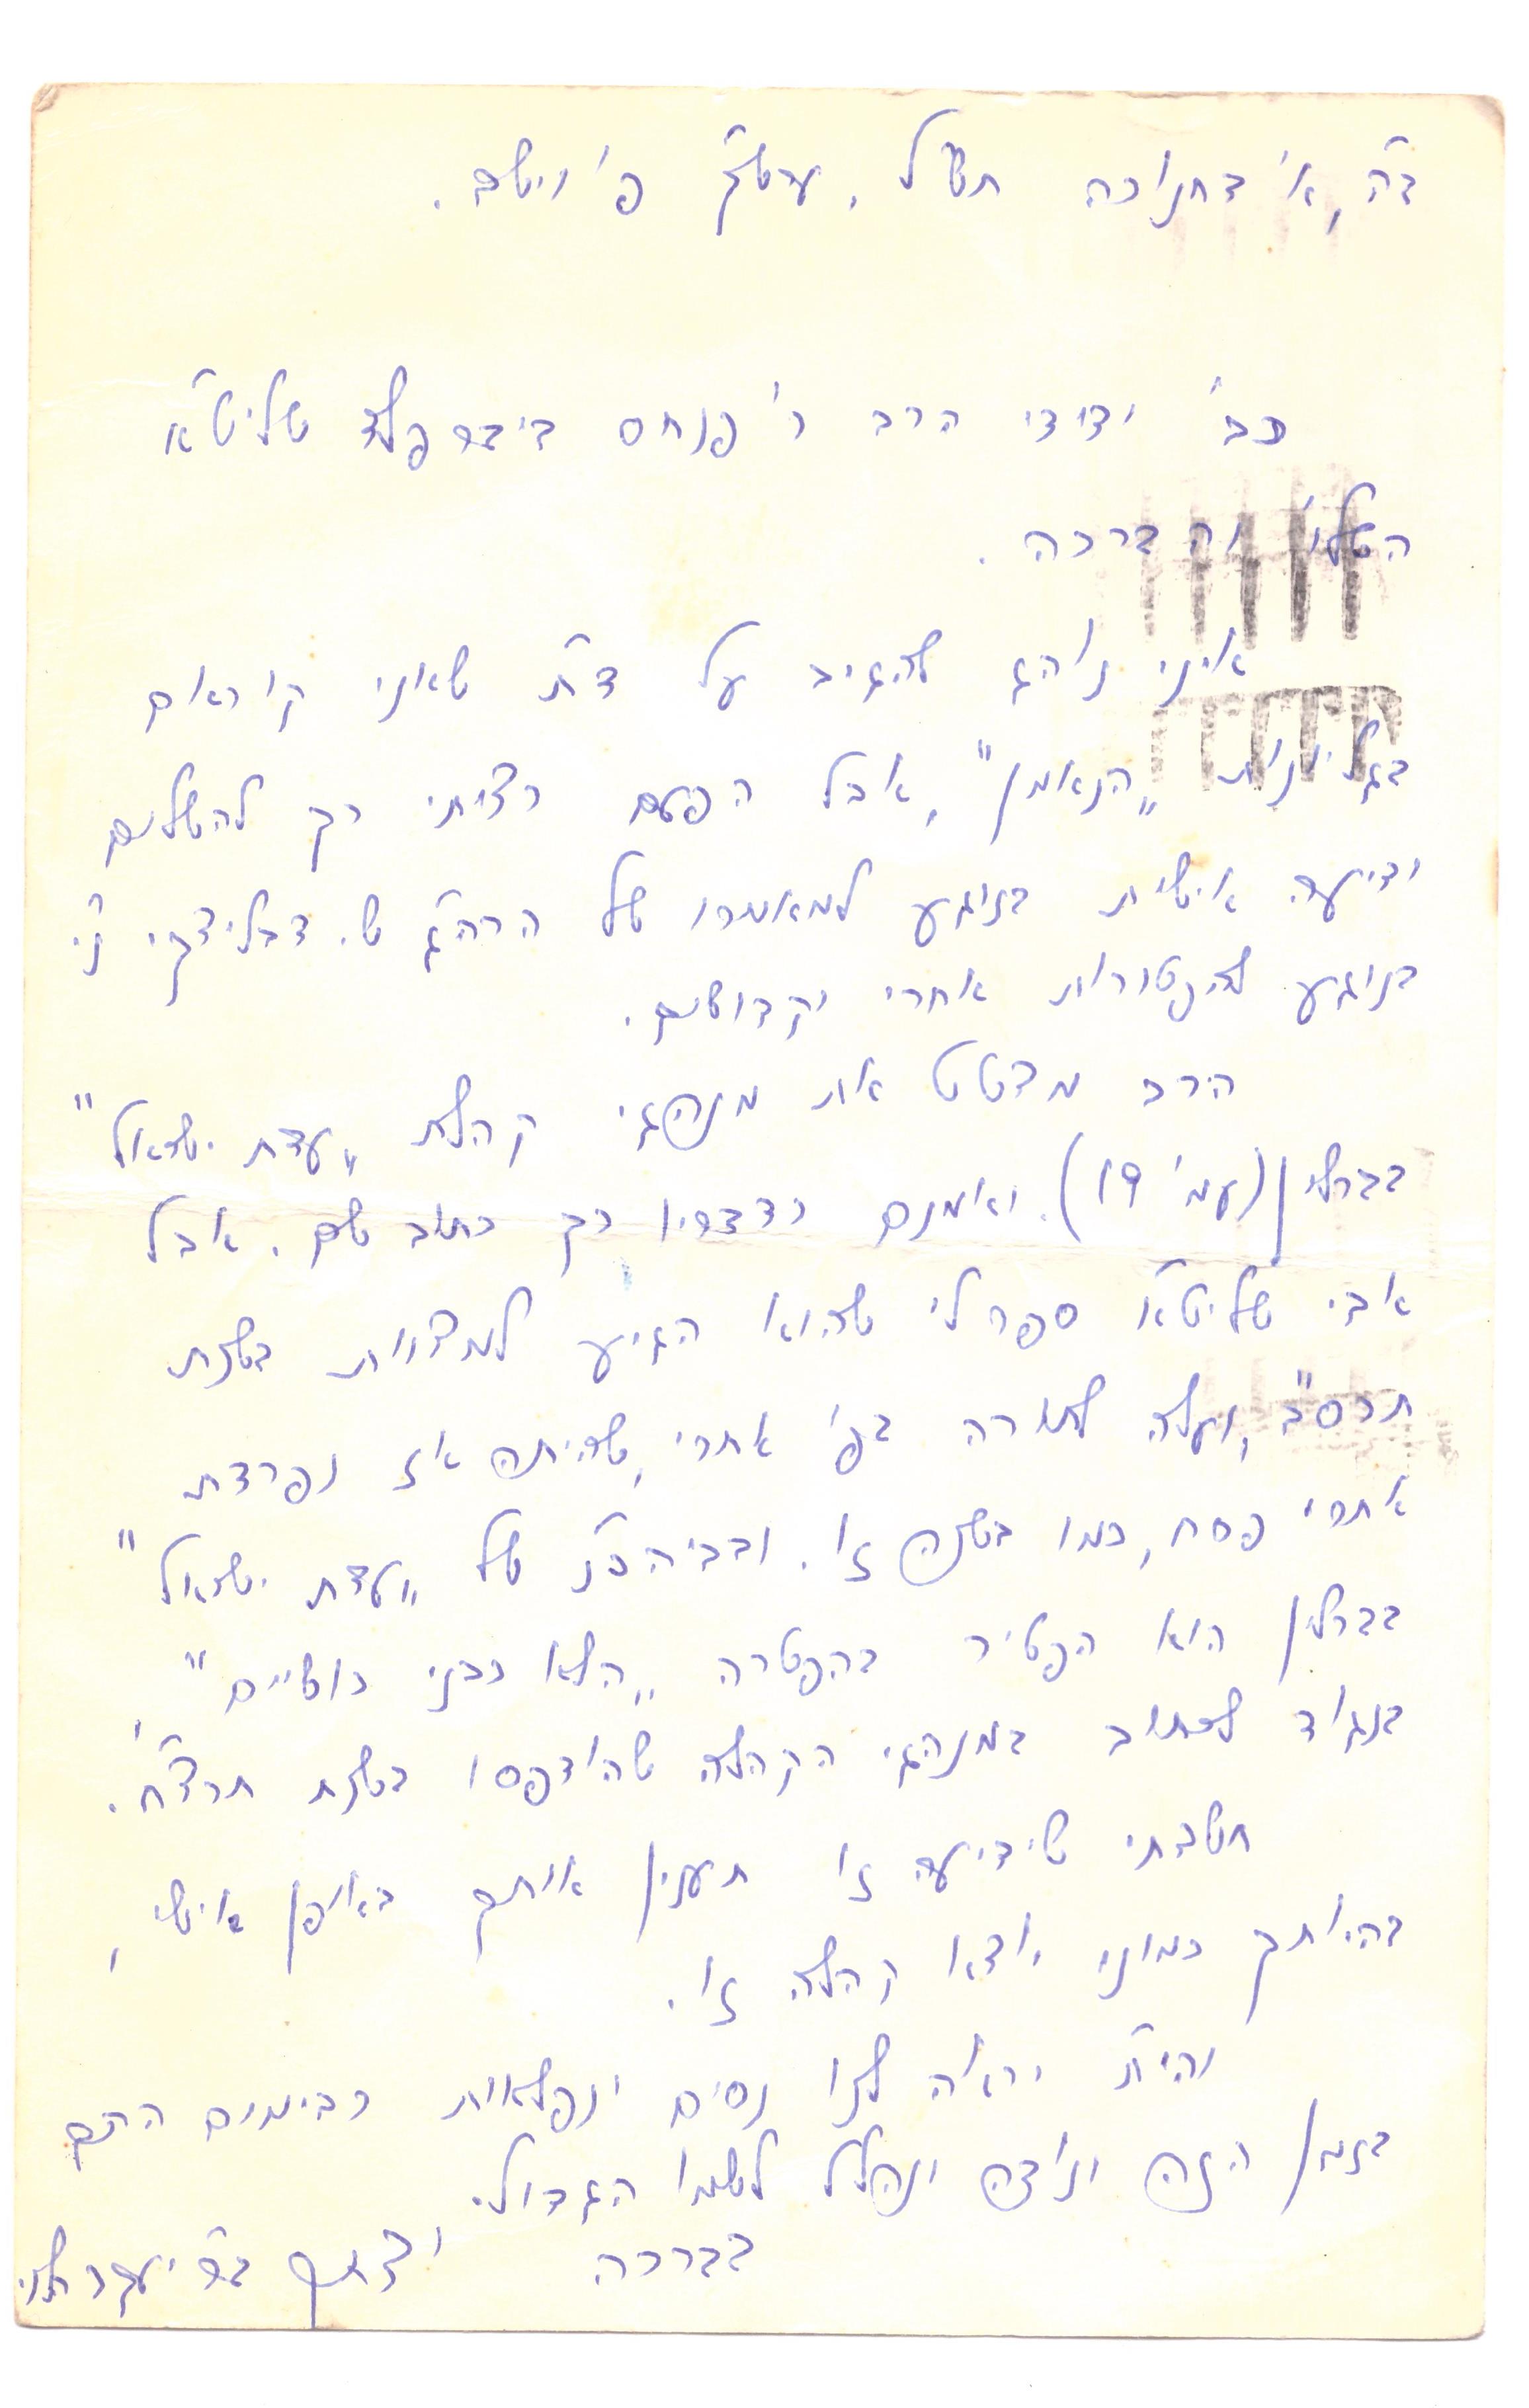 ב״ה, א׳ דחנוכה תש״ל, עש״ק פ׳ וישב.
כב׳ ידידי הרב ר׳ פנחס ביברפלד שליט״א
השלו׳ והברכה.
איני נוהג להגיב על ד״ת שאני קוראם
בגליונות „הנאמן", אבל הפעם רציתי רק להשלים
ידיעה אישית בנוגע למאמרו של הרה״ג ש. דבליצקי נ״י
בנוגע להפטורות אחרי וקדושים.
הרב מצטט את מנהגי קהלת „עדת ישראל"
בברלין (עמ׳ 19). ואמנם כדבריו כך כתוב שם. אבל
אבי שליט״א ספר לי שהוא הגיע למצוות בשנת
תרס"ב, ועלה לתורה בפ׳ אחרי, שהיתה אז נפרדת
אחרי פסח, כמו בשנה זו. ובביהכ״נ של „עדת ישראל"
בברלין הוא הפטיר בהפטרה „הלא כבני כושיים",
בנגוד לכתוב במנהגי הקהלה שהודפסו בשנת תרצ״ח.
חשבתי שידיעה זו תענין אותך באופן אישי,
בהיותך כמוני יוצא קהלה זו.
והי״ת יראה לנו נסים ונפלאות כבימים ההם
בזמן הזה ונודה ונהלל לשמו הגדול.
בברכה